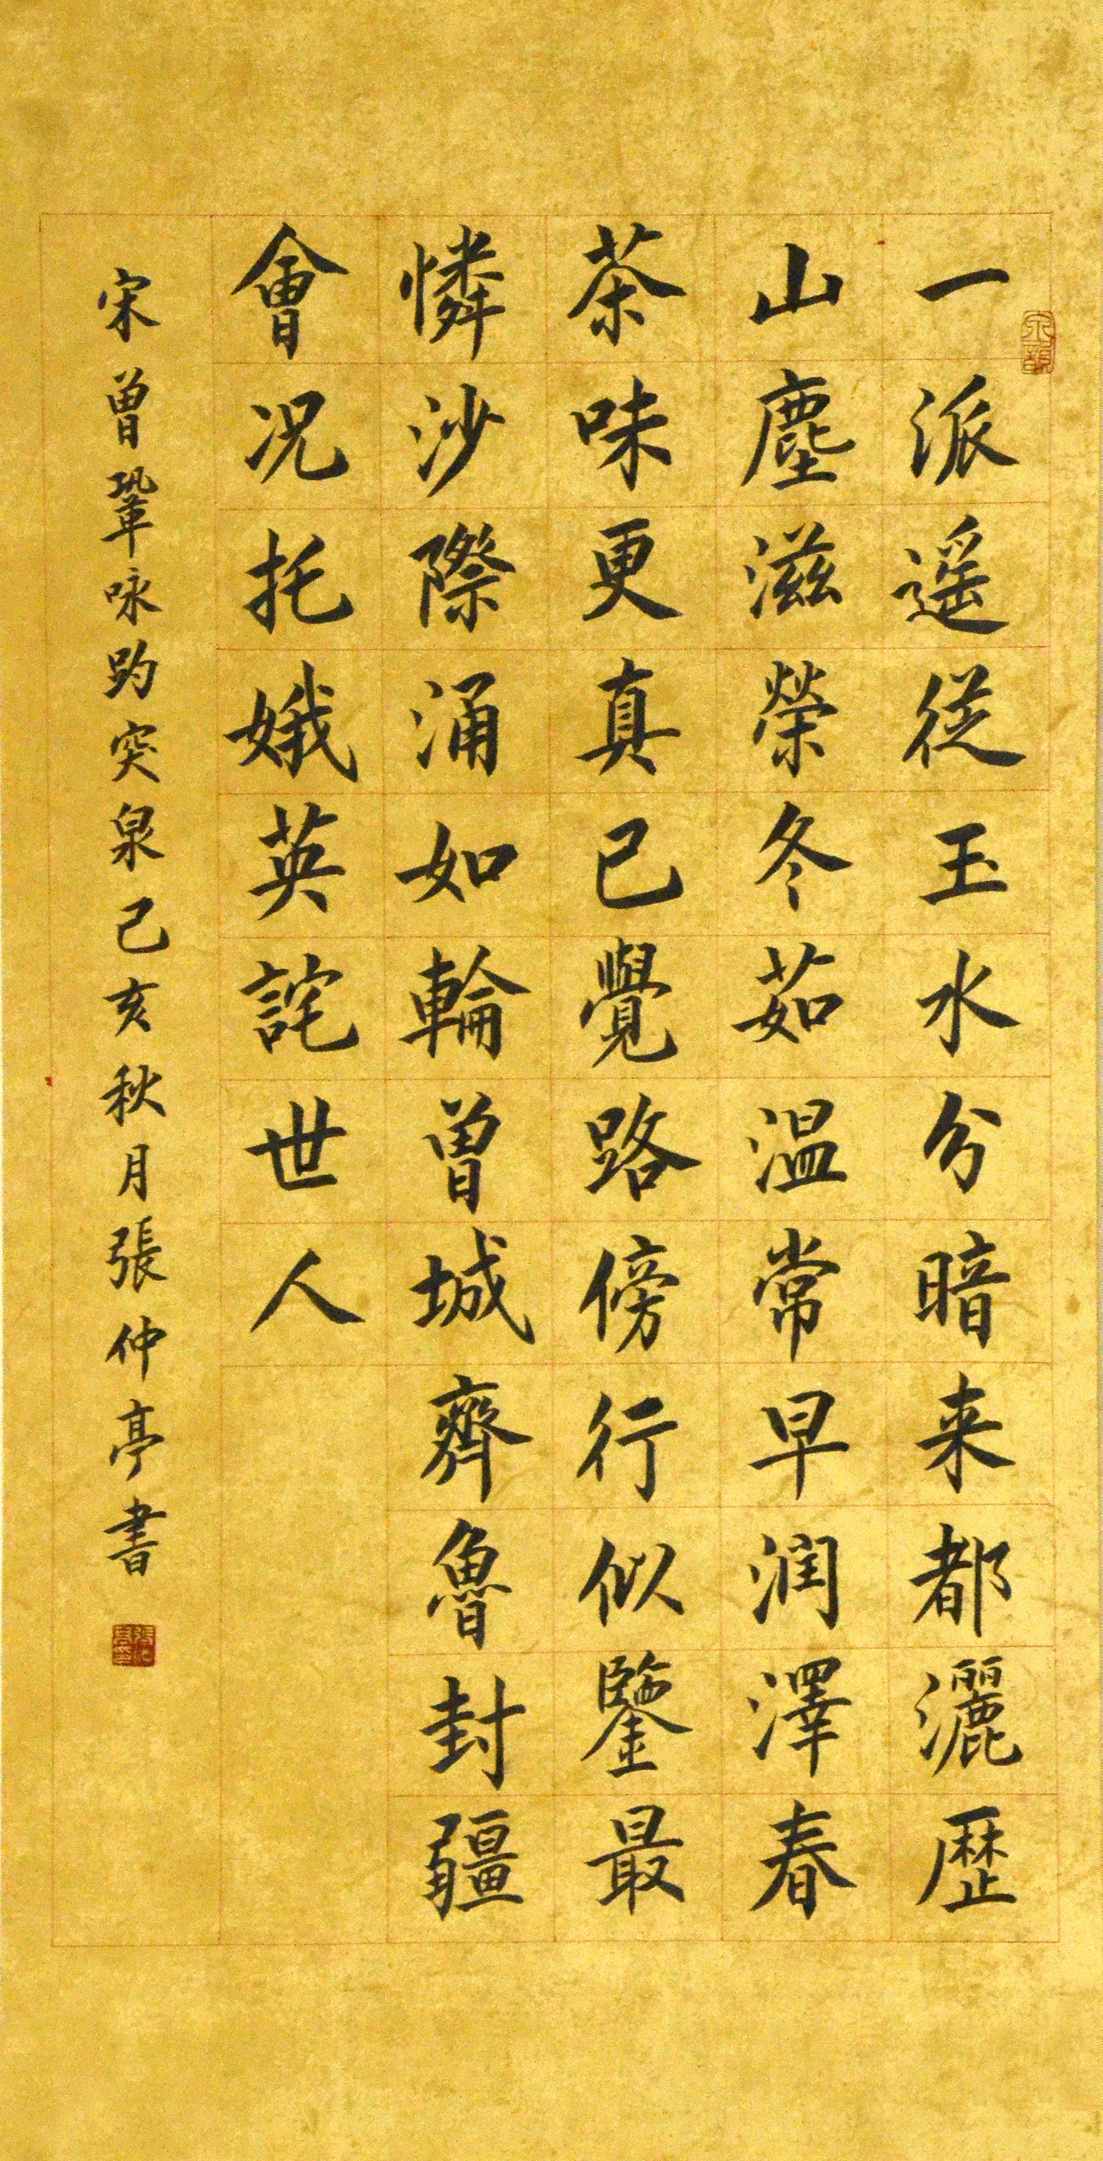 一派遥從玉水分暗来都灑歷
山塵滋榮冬茹温常早润澤春
茶味更真已覺路傍行似鑒最
憐沙際涌如輪曽城齊魯封疆
會况托娥英詫世人
宋曽鞏咏趵突泉己亥秋月張仲亭書